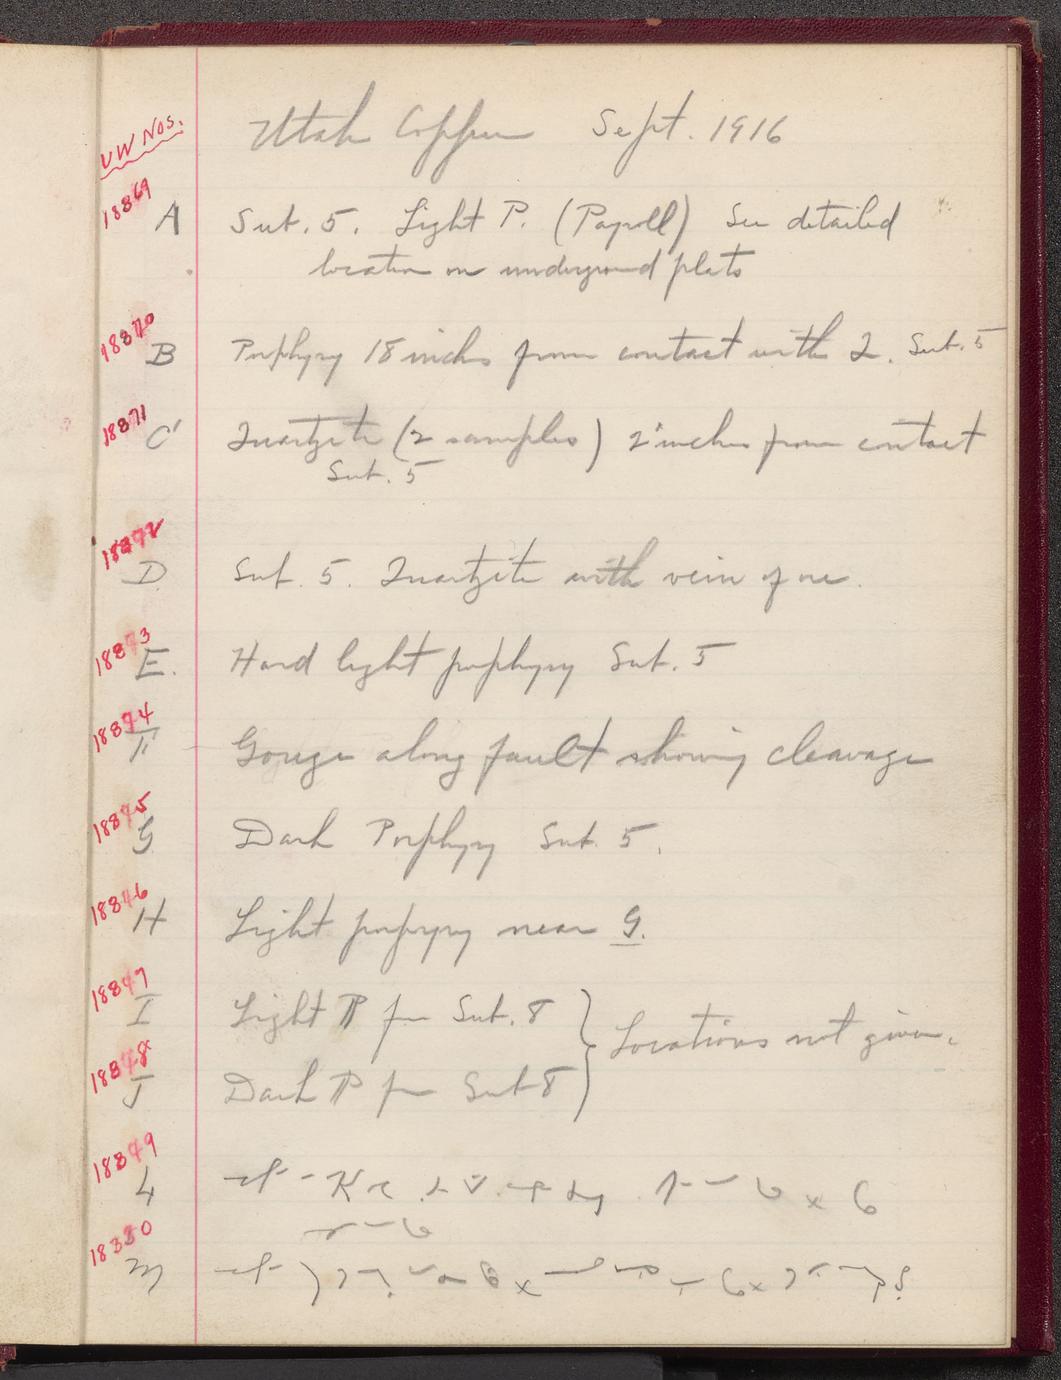 UW Nos.
Utah Copper Sept. 1916
18869
A Sub. 5. Light P. (Payroll) See detailed
location on underground plats
18870
B Porphyry 18 inches from contact with Q. Sub. 5
18871
C Quartzite (2 samples) 2 inches from contact
Sub. 5
18872
D Sub. 5. Quartzite with vein of ore.
18873
E. Hard light porphyry Sub. 5
18874
F Gouge along fault showing cleavage
18875
G Dark Porphyry Sub. 5.
18876
H Light porpyry near G.
18877
I Light P fm Sub. 8
Locations not given.
18878
J Dark P fm Sub 8
18879
L
18880
M